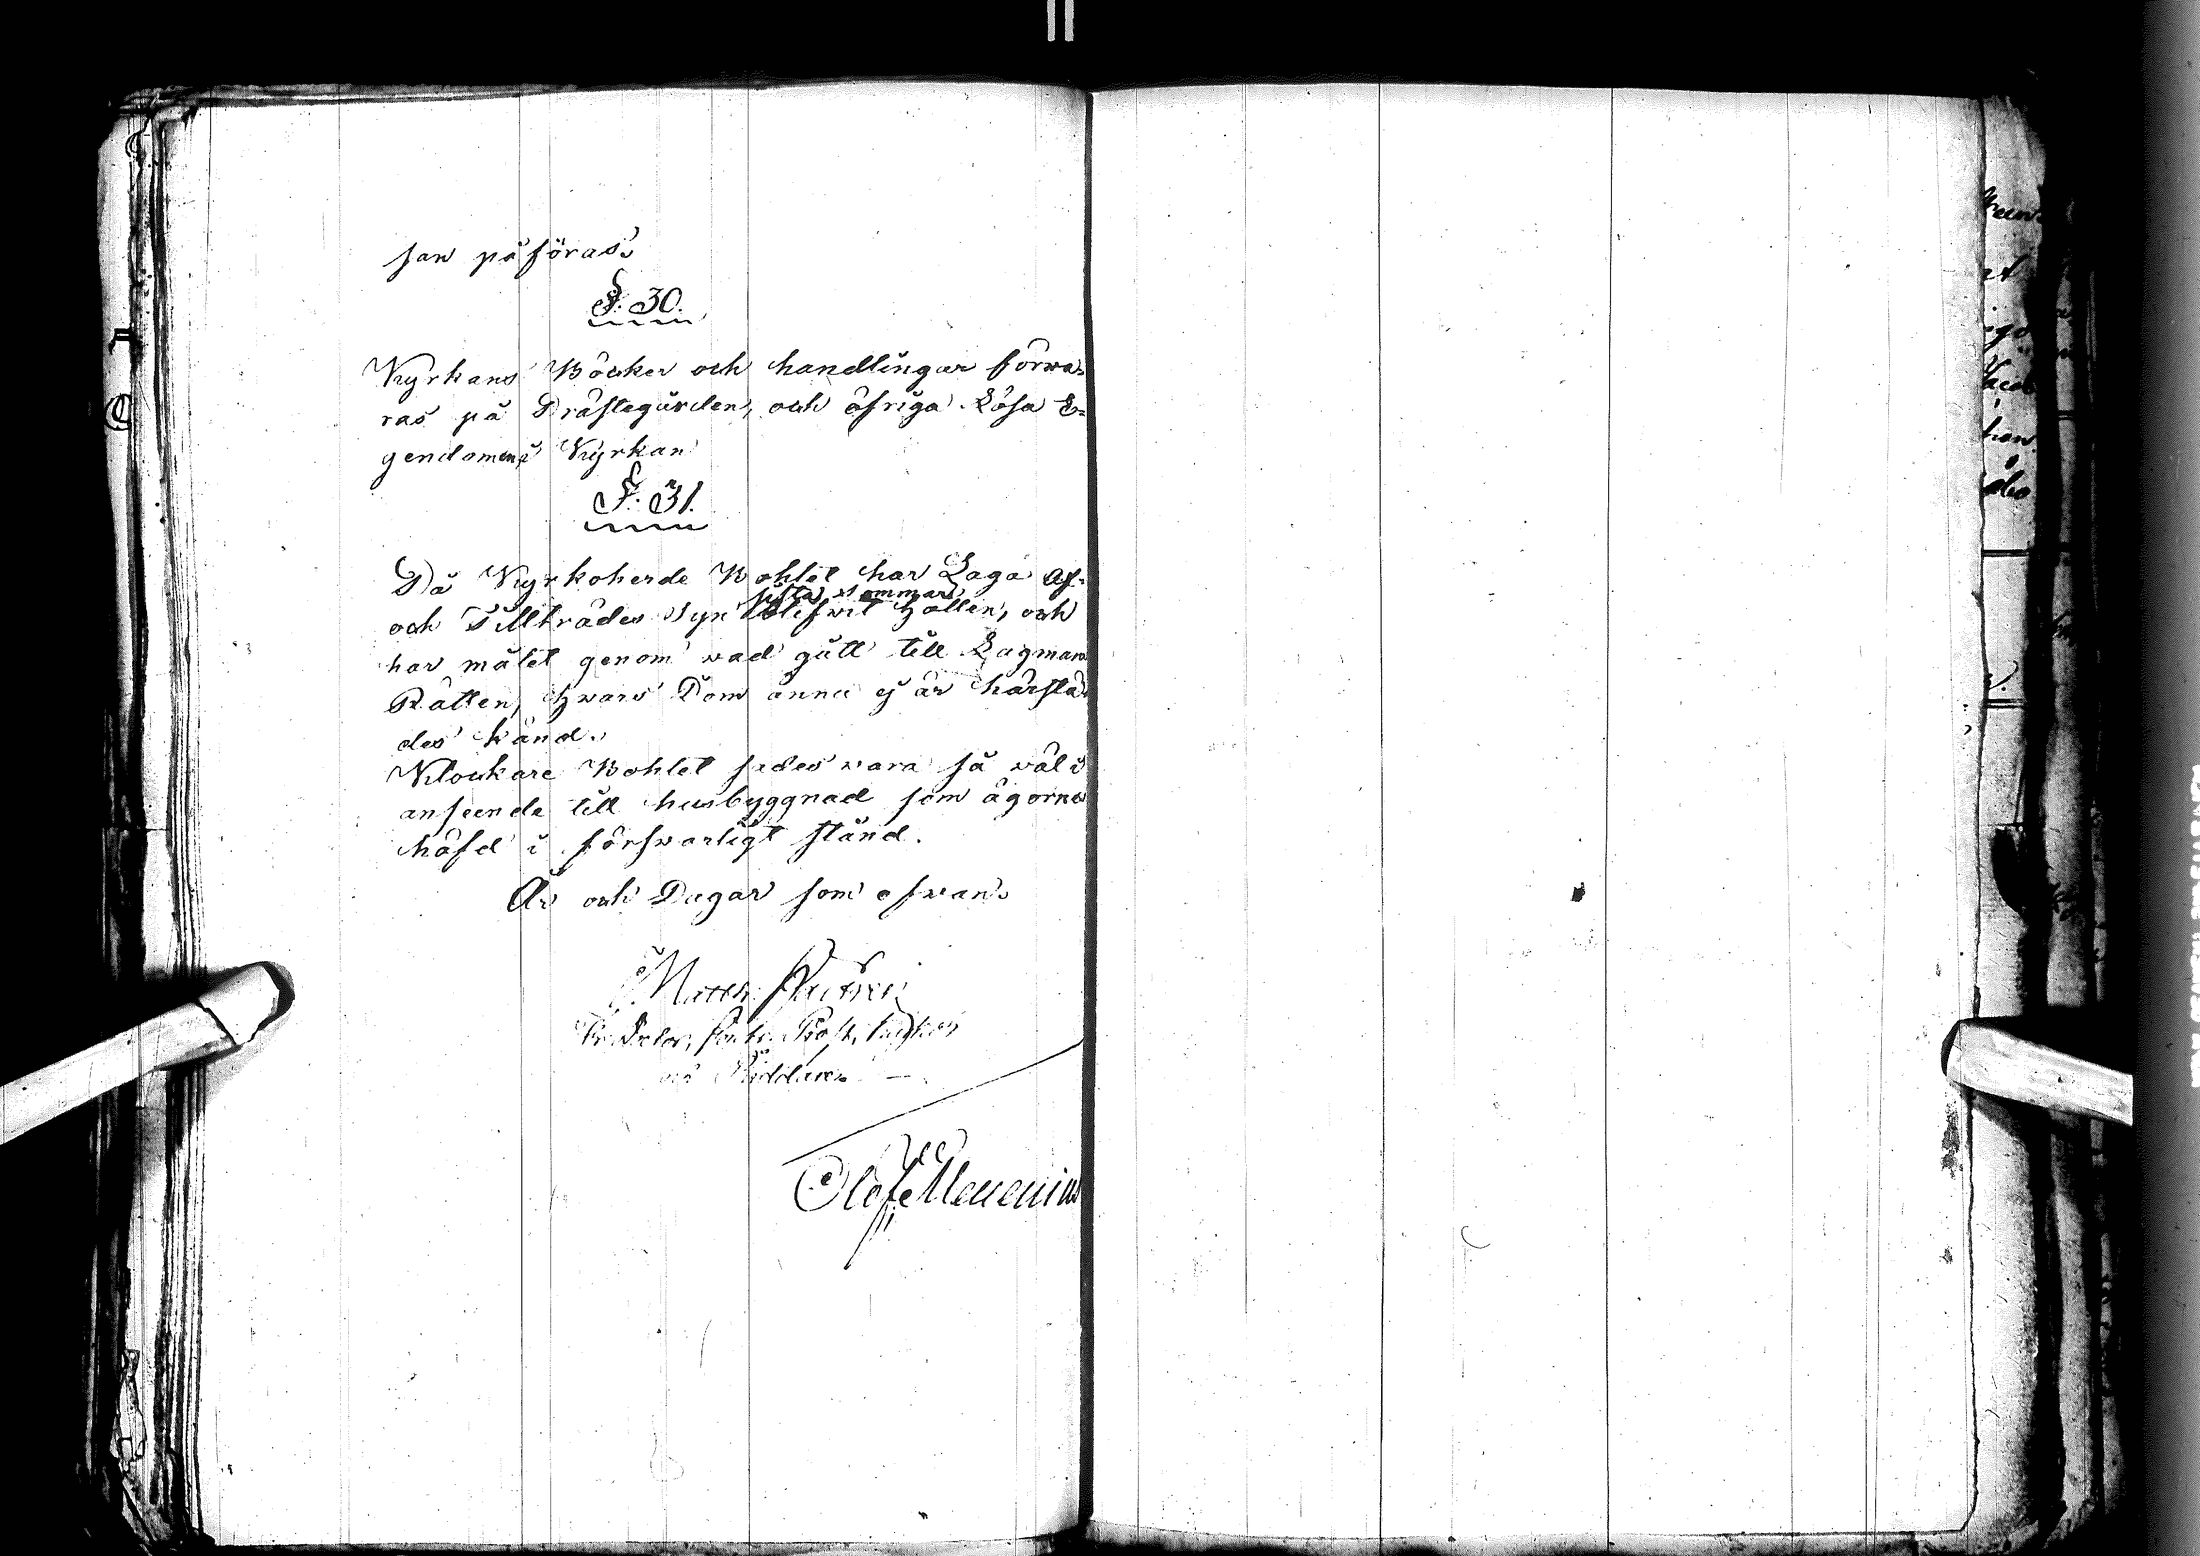 san påföras.
§. 30.
Kyrkans Böcker och handlingar förwa-
ras på Prästegården, och öfriga Lösa E-
gendomen i Kyrkan
§. 31.
På Kyrkoherde Bohlet har Laga Af-
sista sommar
och Tillträdes Syn blifwit hållen, och
har målet genom wad gått till Lagmans
Rätten, hwars Dom ännu ej är härstä-
des känd.
Klockare Bohlet sades wara så wäl i
anseende till husbyggnad som ägornes
häfd i förswarligt stånd.
År och Dagar som ofwan.
Matth.
Prost, Kyrkoh
och Riddare
Olof Menenius